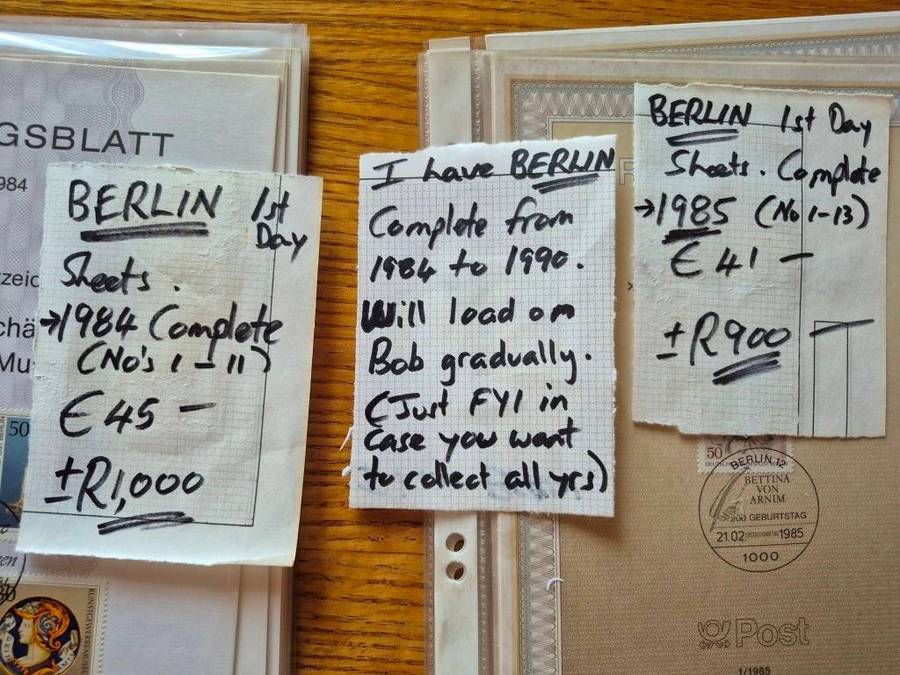 GSBLATT
984
BERLIN 1st
Day
Sheets.
→1984 Complete
(No's 1 - 11)
€ 45 —
±R1,000
50
KUNSTGEWERBEMUSEUM
I have BERLIN
Complete from
1984 to 1990.
Will load on
Bob gradually.
(Just FYI in
case you want
to collect all yrs)
BERLIN 1st Day
Sheets. Complete
→1985 (No 1-13)
€ 41 —
±R900 —
50
DEUTSCHE BUNDESPOST BERLIN
BERLIN 12
BETTINA
VON
ARNIM
200 GEBURTSTAG
21.02.1985
1000
Post
1/1985